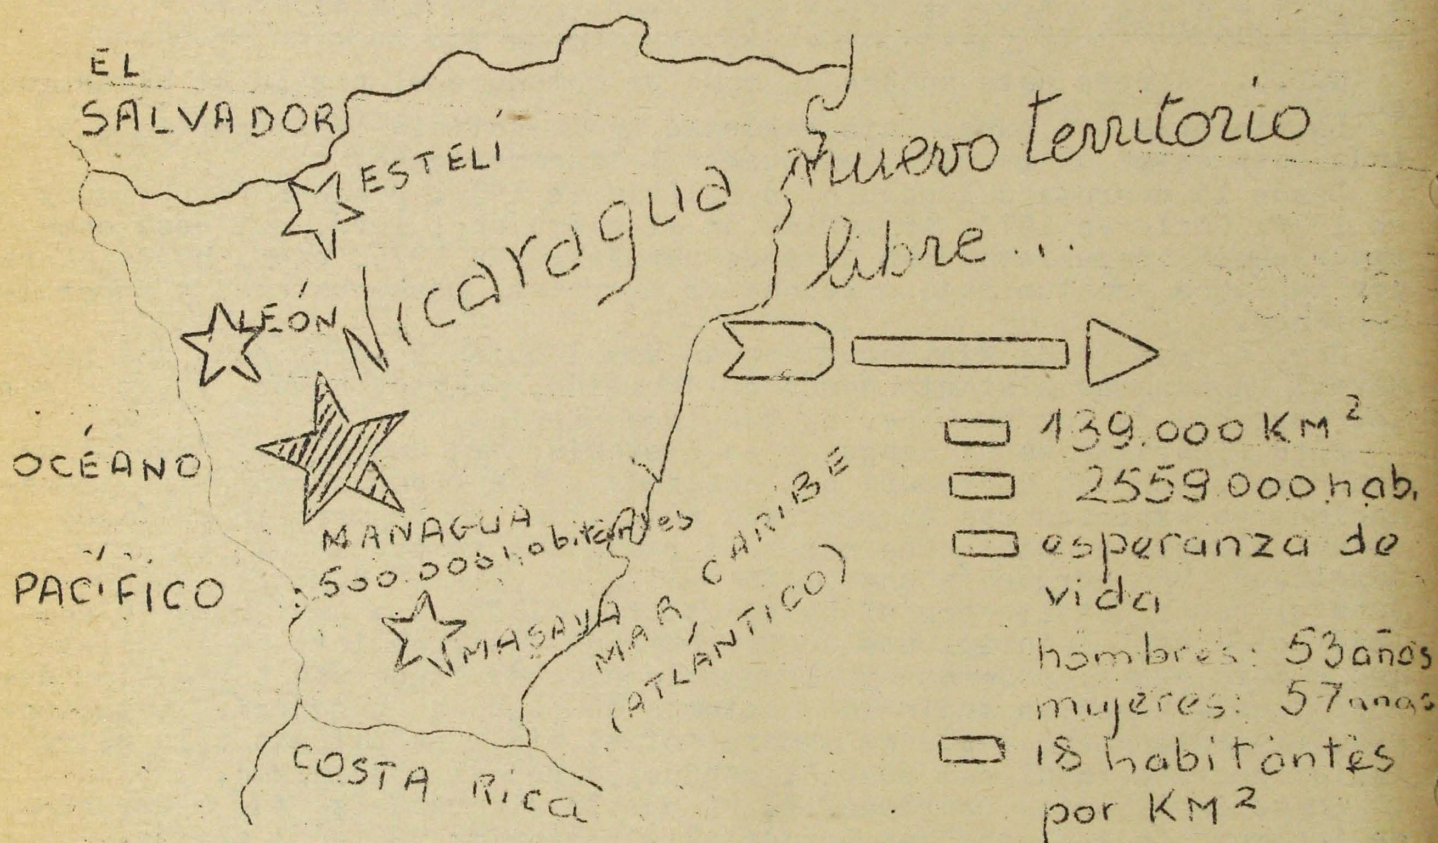 EL
SALVADOR
ESTELÍ
Nicaragua nuevo territorio
libre...
LEÓN
OCÉANO
PACÍFICO
MANAGUA
500.000 habitantes
MASAYA
MAR CARIBE
(ATLÁNTICO)
COSTA RICA
139.000 KM²
2559.000 hab.
esperanza de
vida
hombres: 53 años
mujeres: 57 años
18 habitantes
por KM²